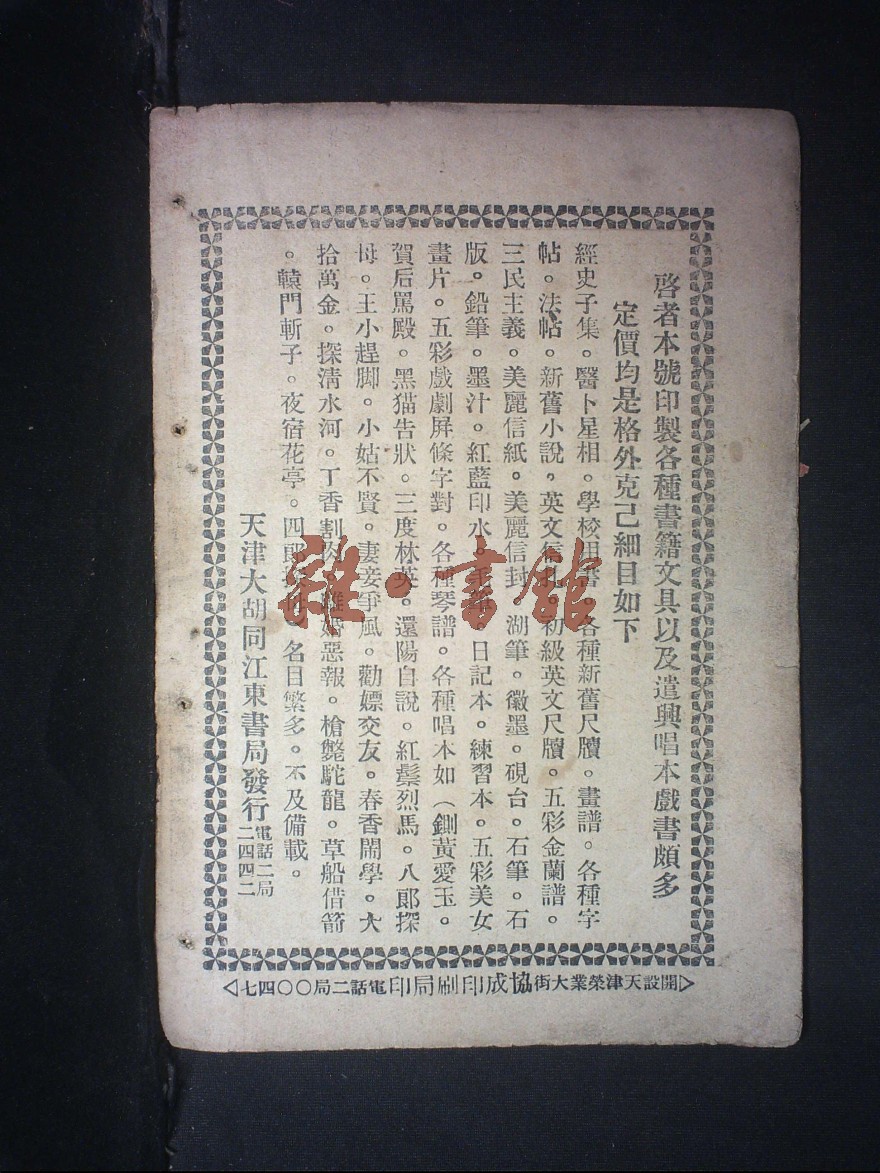 啓者本號印製各種書籍文具以及遣興唱本戲書頗多
定價均是格外克己細目如下
經史子集。醫卜星相。學校用書。各種新舊尺牘。畫譜。各種字
帖。法帖。新舊小說。英文信札。初級英文尺牘。五彩金蘭譜。
三民主義。美麗信紙。美麗信封。湖筆。徽墨。硯台。石筆。石
版。鉛筆。墨汁。紅藍印水。毛筆。日記本。練習本。五彩美女
畫片。五彩戲劇屏條字對。各種琴譜。各種唱本如(鍘黃愛玉。
賀后駡殿。黑猫告狀。三度林英。還陽自說。紅鬃烈馬。八郎探
母。王小趕脚。小姑不賢。妻妾爭風。勸嫖交友。春香鬧學。大
拾萬金。探清水河。丁香割肉。離婚惡報。槍斃駝龍。草船借箭
。轅門斬子。夜宿花亭。四郎探母)名目繁多。不及備載。
天津大胡同江東書局發行
電話二局
二四四二
開設天津榮業大街協成印刷局印電話二局〇〇四七
雜·書館